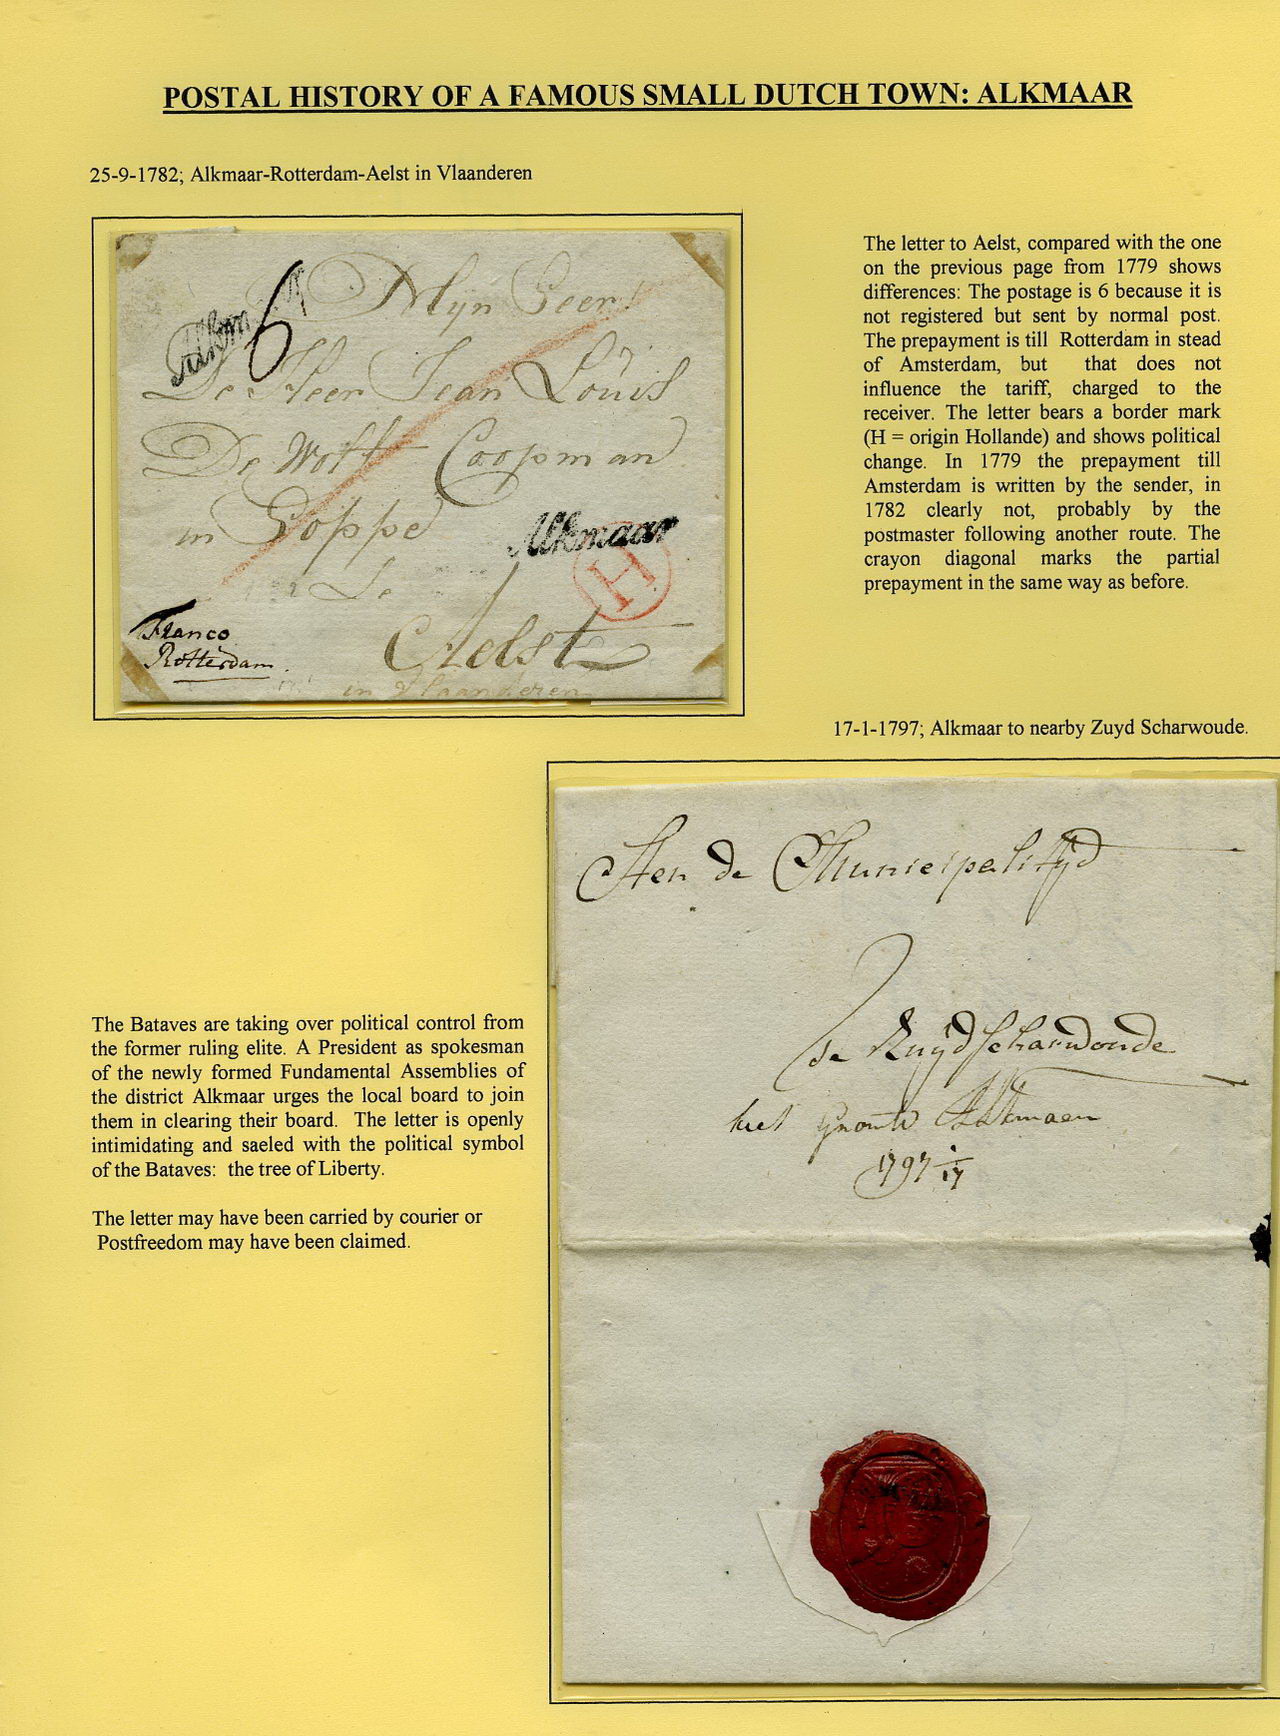 POSTAL HISTORY OF A FAMOUS SMALL DUTCH TOWN: ALKMAAR
25-9-1782; Alkmaar-Rotterdam-Aelst in Vlaanderen
Mijn Heer
6
De Heer Jean Louis
De Wolf Coopman
in Hoppe
Alkmaar
H
Te
Franco
Rotterdam
Aelst
in Vlaanderen
The letter to Aelst, compared with the one
on the previous page from 1779 shows
differences: The postage is 6 because it is
not registered but sent by normal post.
The prepayment is till Rotterdam in stead
of Amsterdam, but that does not
influence the tariff, charged to the
receiver. The letter bears a border mark
(H = origin Hollande) and shows political
change. In 1779 the prepayment till
Amsterdam is written by the sender, in
1782 clearly not, probably by the
postmaster following another route. The
crayon diagonal marks the partial
prepayment in the same way as before.
17-1-1797; Alkmaar to nearby Zuyd Scharwoude.
Aen de Municipalityd
te Zuydscharwoude
Alkmaar
1797 1/17
The Bataves are taking over political control from
the former ruling elite. A President as spokesman
of the newly formed Fundamental Assemblies of
the district Alkmaar urges the local board to join
them in clearing their board. The letter is openly
intimidating and saeled with the political symbol
of the Bataves: the tree of Liberty.
The letter may have been carried by courier or
Postfreedom may have been claimed.